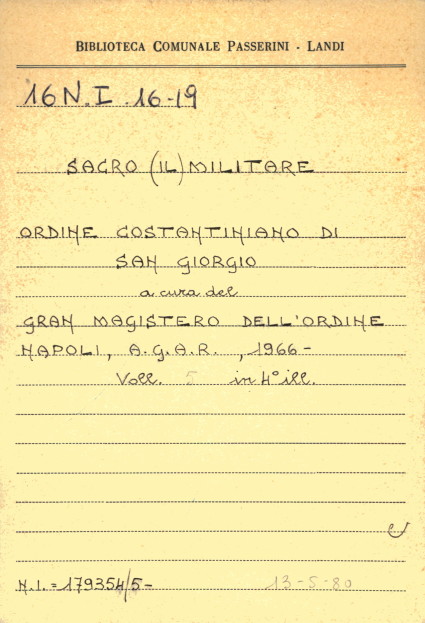 BIBLIOTECA COMUNALE PASSERINI - LANDI
16 N. I . 16-19
SACRO (IL) MILITARE
ORDINE COSTANTINIANO DI
SAN GIORGIO
a cura del
GRAN MAGISTERO DELL'ORDINE
NAPOLI, A.G.A.R. , 1966-
Voll. 5 in 4° ill.
N.I. = 179354/5-
13-5-80